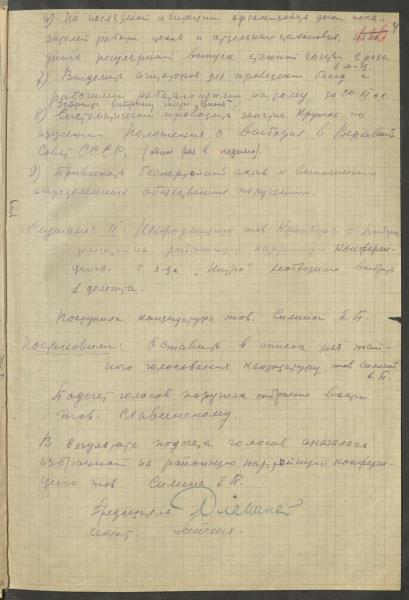 6) По наглядной агитации организовать доски пока-
зателей работы цехов и отдельных
регулярный выпуск стенной газеты 2 раза
в м-ц.
7) Выделить агитаторов для проведения бесед с
рабочими работающими на дому до 20-XI с.г.
газеты
8) Систематически проводить занятие кружка по
изучению Положения о выборах в Верховный
Совет СССР, (один раз в неделю).
9) Привлекать беспартийный актив к выполнению
определенных общественных поручений.
II
Слушали: II Информацию тов о выборах
делегата на районную партийную конферен-
цию. С з-да необходимо выбрать
1 делегата.
Поступила кандидатура тов. Силиной Е.П.
Постановили: Оставить в списке для тай-
ного голосования кандидатуру тов Силиной
Е.П.
Подсчет голосов поручила собрание вести
тов. Славинскому.
В результате подсчета голосов оказалась
избранной на районную партийную конферен-
цию тов Силина Е.П.
Председатель
Секрет.